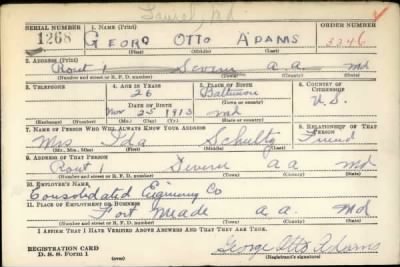 Laurel, Md
SERIAL NUMBER 1. NAME (Print) ORDER NUMBER
1268 GEORG OTTO ADAMS 3346
(First) (Middle) (Last)
2. ADDRESS (Print)
Rout 1 Severn a.a. Md
(Number and street or R. F. D. number) (Town) (County) (State)
3. TELEPHONE 4. AGE IN YEARS 5. PLACE OF BIRTH 6. COUNTRY OF CITIZENSHIP
26 Baltimore
(Town or county)
DATE OF BIRTH U.S.
Nov 25 1913 Md
(Exchange) (Number) (Mo.) (Day) (Yr.) (State or country)
7. NAME OF PERSON WHO WILL ALWAYS KNOW YOUR ADDRESS 8. RELATIONSHIP OF THAT PERSON
Mrs Ida Schultz Friend
(Mr., Mrs., Miss) (First) (Middle) (Last)
9. ADDRESS OF THAT PERSON
Rout 1 Severn a.a. Md
(Number and street or R. F. D. number) (Town) (County) (State)
10. EMPLOYER'S NAME
Consolidated Co
11. PLACE OF EMPLOYMENT OR BUSINESS
Fort Meade a.a. Md
(Number and street or R. F. D. number) (Town) (County) (State)
I AFFIRM THAT I HAVE VERIFIED ABOVE ANSWERS AND THAT THEY ARE TRUE.
REGISTRATION CARD George Otto Adams
D. S. S. Form 1 (Registrant's signature)